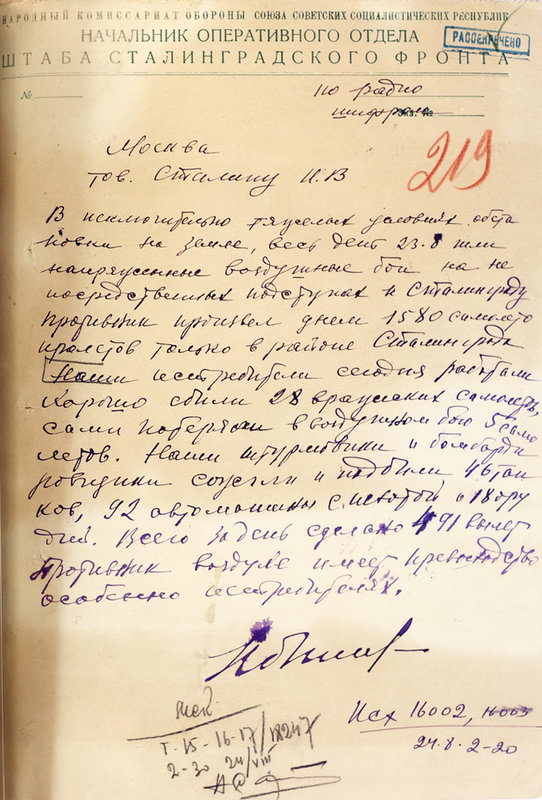 НАРОДНЫЙ КОМИССАРИАТ ОБОРОНЫ СОЮЗА СОВЕТСКИХ СОЦИАЛИСТИЧЕСКИХ РЕСПУБЛИК
НАЧАЛЬНИК ОПЕРАТИВНОГО ОТДЕЛА
РАССЕКРЕЧЕНО
ШТАБА СТАЛИНГРАДСКОГО ФРОНТА
№
по радио
шифром
Экз. №
219
Москва
тов. Сталину И.В
В исключительно тяжелых условиях обста
новки на земле, весь день 23.8 шли
напряженные воздушные бои на не
посредственных подступах к Сталинграду
Противник произвел днем 1580 самолето
пролетов только в районе Сталинграда
Наши истребители сегодня работали
хорошо сбили 28 вражеских самолетов,
сами потеряли в воздушном бою 5 само
летов. Наши штурмовики и бомбарди
ровщики сожгли и подбили 46 тан
ков, 92 автомашины с пехотой и 18 ору
дий. Всего за день сделано 491 вылет
Противник воздухе имеет превосходство
особенно истребителях.
Исх 16002, 16003
24.8. 2-20
Т-15-16-17/18247
2-30 24/VIII